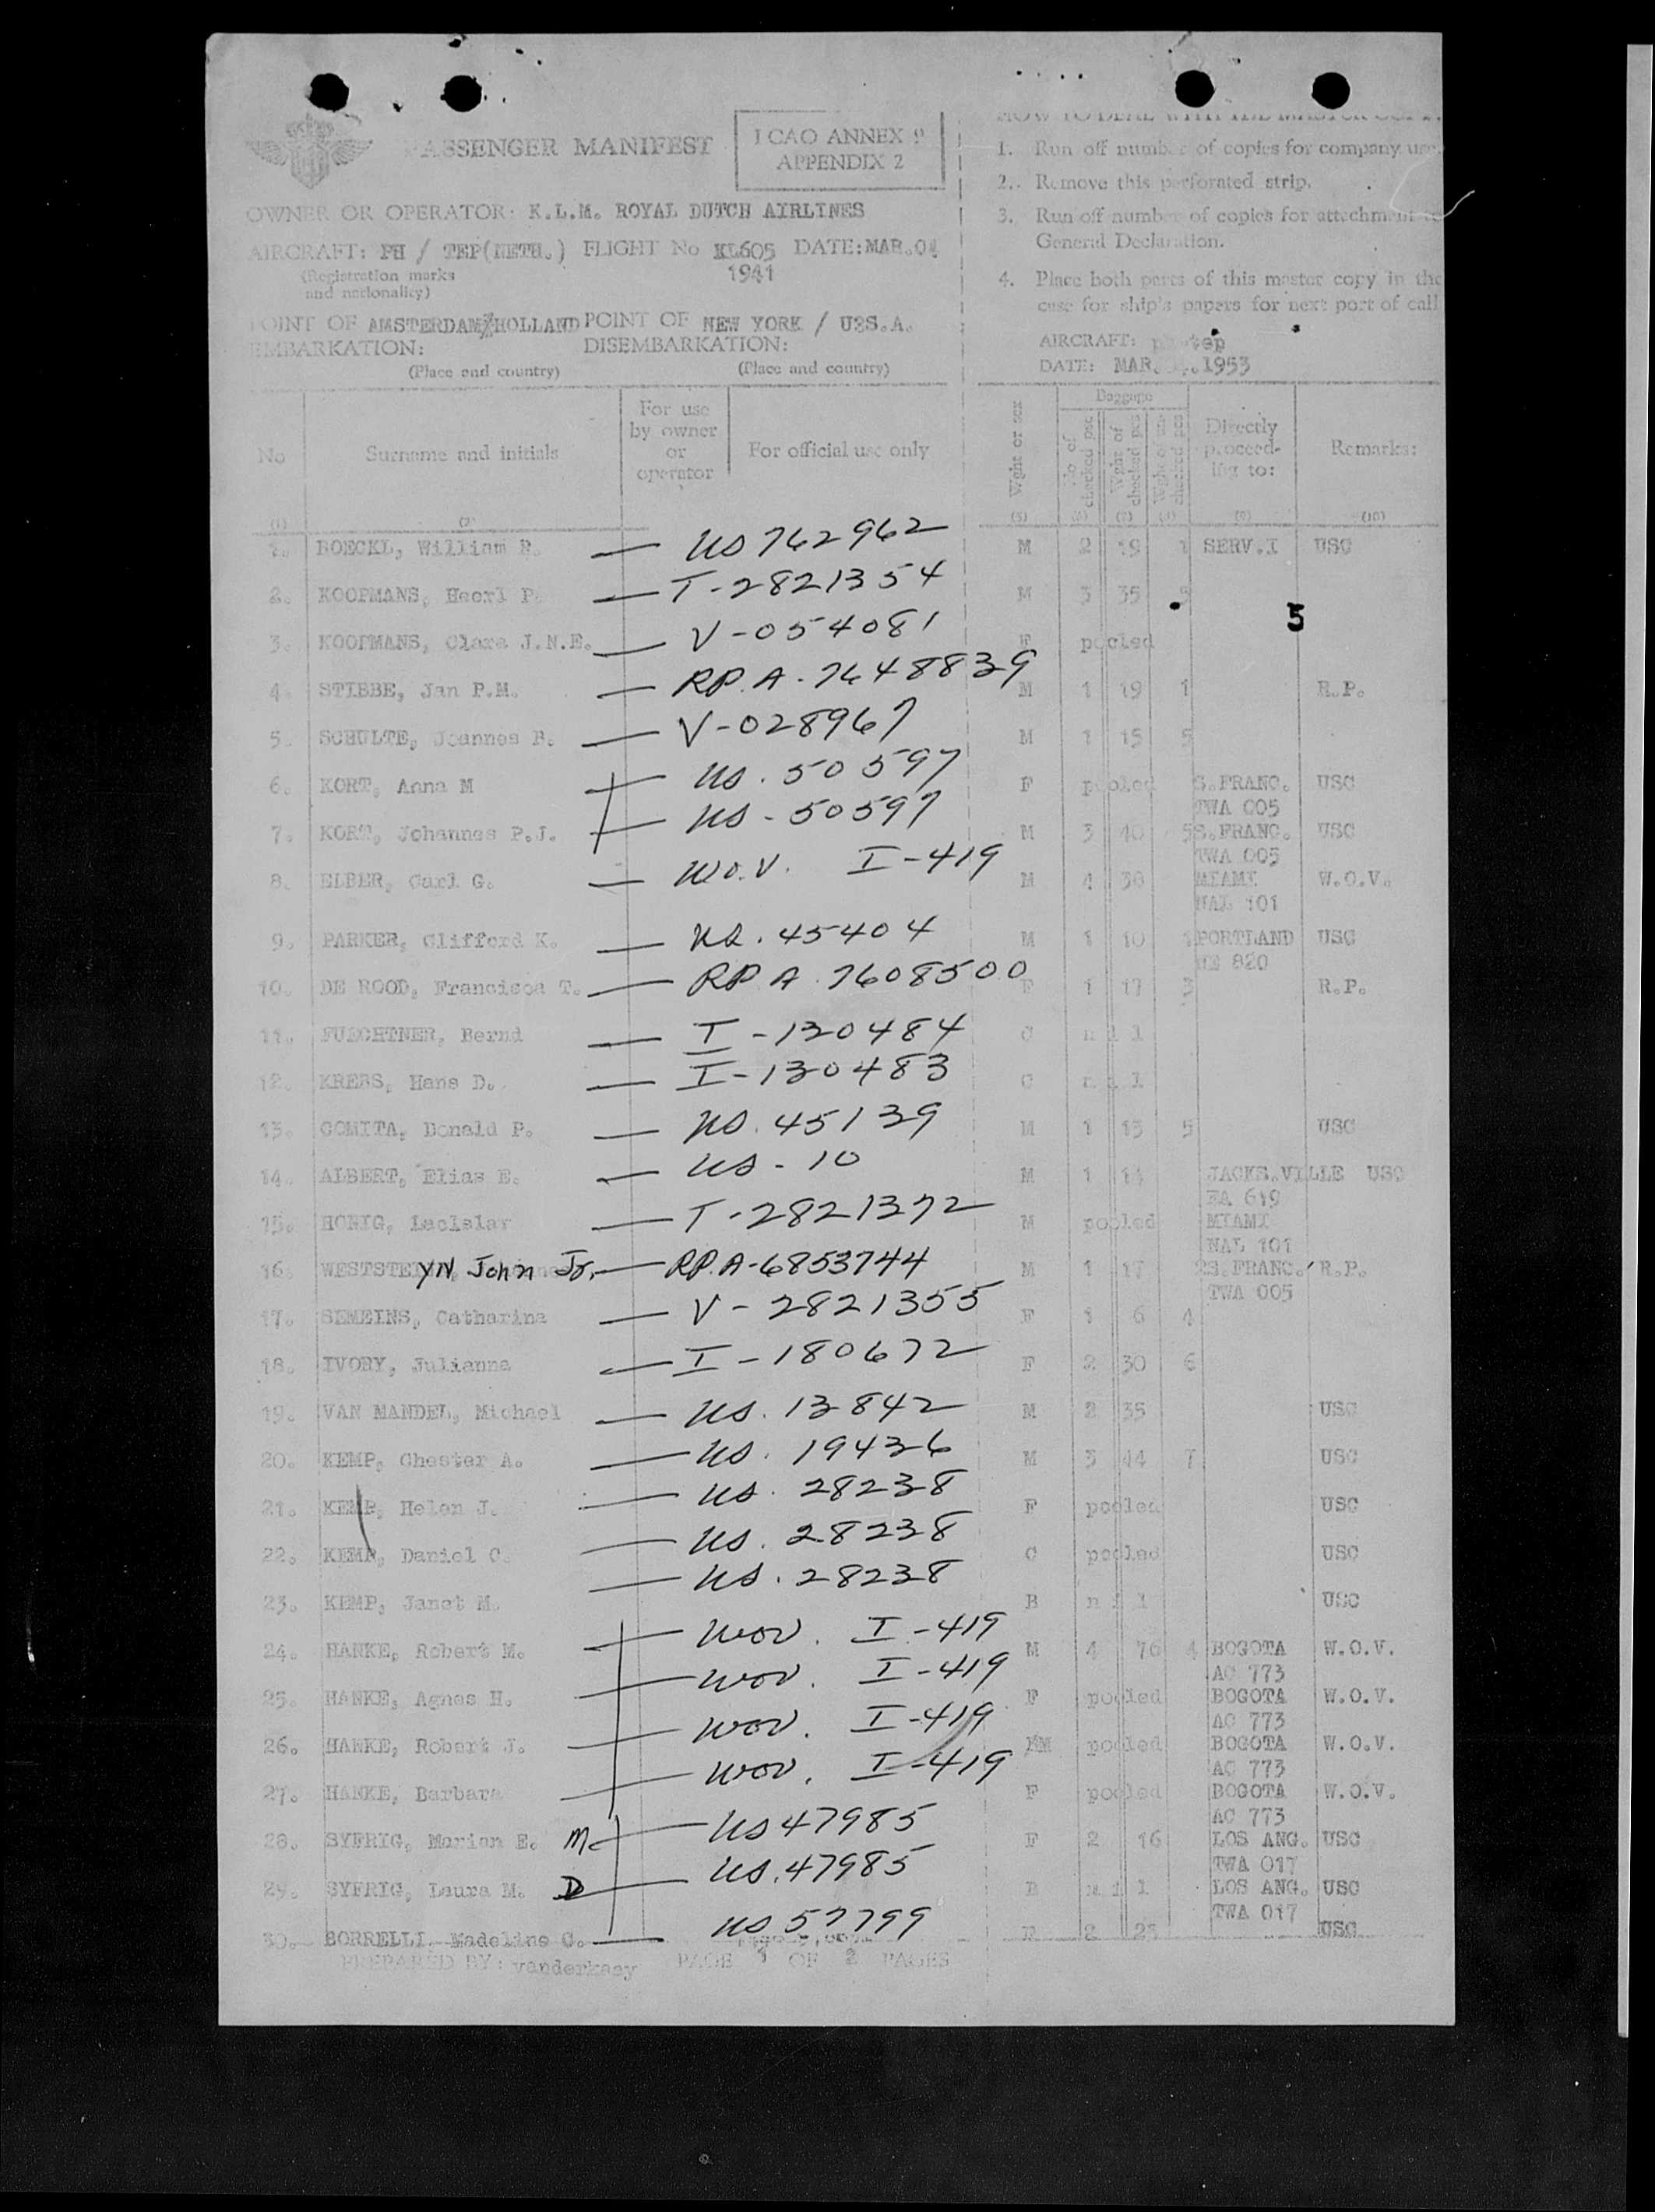 PASSENGER MANIFEST
ICAO ANNEX 9
APPENDIX 2
OWNER OR OPERATOR: K.L.M. ROYAL DUTCH AIRLINES
AIRCRAFT: PH / TEP(NETH.) FLIGHT No KL605 DATE: MAR.04
(Registration marks and nationality) 1941
POINT OF EMBARKATION: AMSTERDAM/HOLLAND POINT OF DISEMBARKATION: NEW YORK / U.S.A.
(Place and country) (Place and country)
HOW TO DEAL WITH THE MASTER COPY
1. Run off number of copies for company use.
2. Remove this perforated strip.
3. Run off number of copies for attachment to
General Declaration.
4. Place both parts of this master copy in the
case for ship's papers for next port of call
AIRCRAFT: tep
DATE: MAR. 1953
No Surname and initials For use by owner or operator For official use only Wght or sex Baggage No of checked pcs Wght of checked pcs Directly proceeding to: Remarks:
1. BOECKL, William — US 762962 M 2 19 1 SERV.I USC
2. KOOPMANS, P. — T-2821354 M 3 35 5
5
3. KOOPMANS, Clara J.N.E. — V-054081 F pooled
4. STIBBE, Jan P.M. — RP. A-7648839 M 1 19 1 R.P.
5. SCHULTE, Joannes B. — V-028967 M 1 15 5
6. KORT, Anna M — US. 50597 F pooled S.FRANC. USC
TWA 005
7. KORT, Johannes P.J. — US-50597 M 3 40 5 S.FRANC. USC
TWA 005
8. ELBER, Carl G. — W.O.V. I-419 M 4 30 MIAMI W.O.V.
NAL 101
9. PARKER, Clifford K. — US. 45404 M 1 10 1 PORTLAND USC
NE 820
10. DE ROOD, Francisca T. — RP A 7608500 F 1 17 3 R.P.
11. FUECHTNER, Bernd — I-130484 C nil
12. KREBS, Hans D. — I-130483 C nil
13. GOMITA, Donald P. — US. 45139 M 1 15 5 USC
14. ALBERT, Elias E. — US-10 M 1 14 JACKS.VILLE USC
EA 619
15. HONIG, Laclslar — T-2821372 M pooled MIAMI
NAL 101
16. WESTSTEYN, John Jr. — RP.A-6853744 M 1 17 2 S.FRANC. R.P.
TWA 005
17. SEMEINS, Catharina — V-2821355 F 1 6 4
18. IVORY, Julianna — I-180672 F 2 30 6
19. VAN MANDEL, Michael — US. 13842 M 2 35 USC
20. KEMP, Chester A. — US. 19436 M 3 44 7 USC
21. KEMP, Helen J. — US. 28238 F pooled USC
22. KEMP, Daniel C. — US. 28238 C pooled USC
23. KEMP, Janet M. — US. 28238 B nil USC
24. HANKE, Robert M. — WOV. I-419 M 4 76 4 BOGOTA W.O.V.
AC 773
25. HANKE, Agnes H. — WOV. I-419 F pooled BOGOTA W.O.V.
AC 773
26. HANKE, Robert J. — WOV. I-419 M pooled BOGOTA W.O.V.
AC 773
27. HANKE, Barbara — WOV. I-419 F pooled BOGOTA W.O.V.
AC 773
28. SYFRIG, Marian E. M — US 47985 F 2 16 LOS ANG. USC
TWA 017
29. SYFRIG, Laura M. D — US. 47985 B nil LOS ANG. USC
TWA 017
30. BORRELLI, Madeline C. — US 57799 F 2 23 USC
PREPARED BY: vanderkaay PAGE 1 OF 2 PAGES